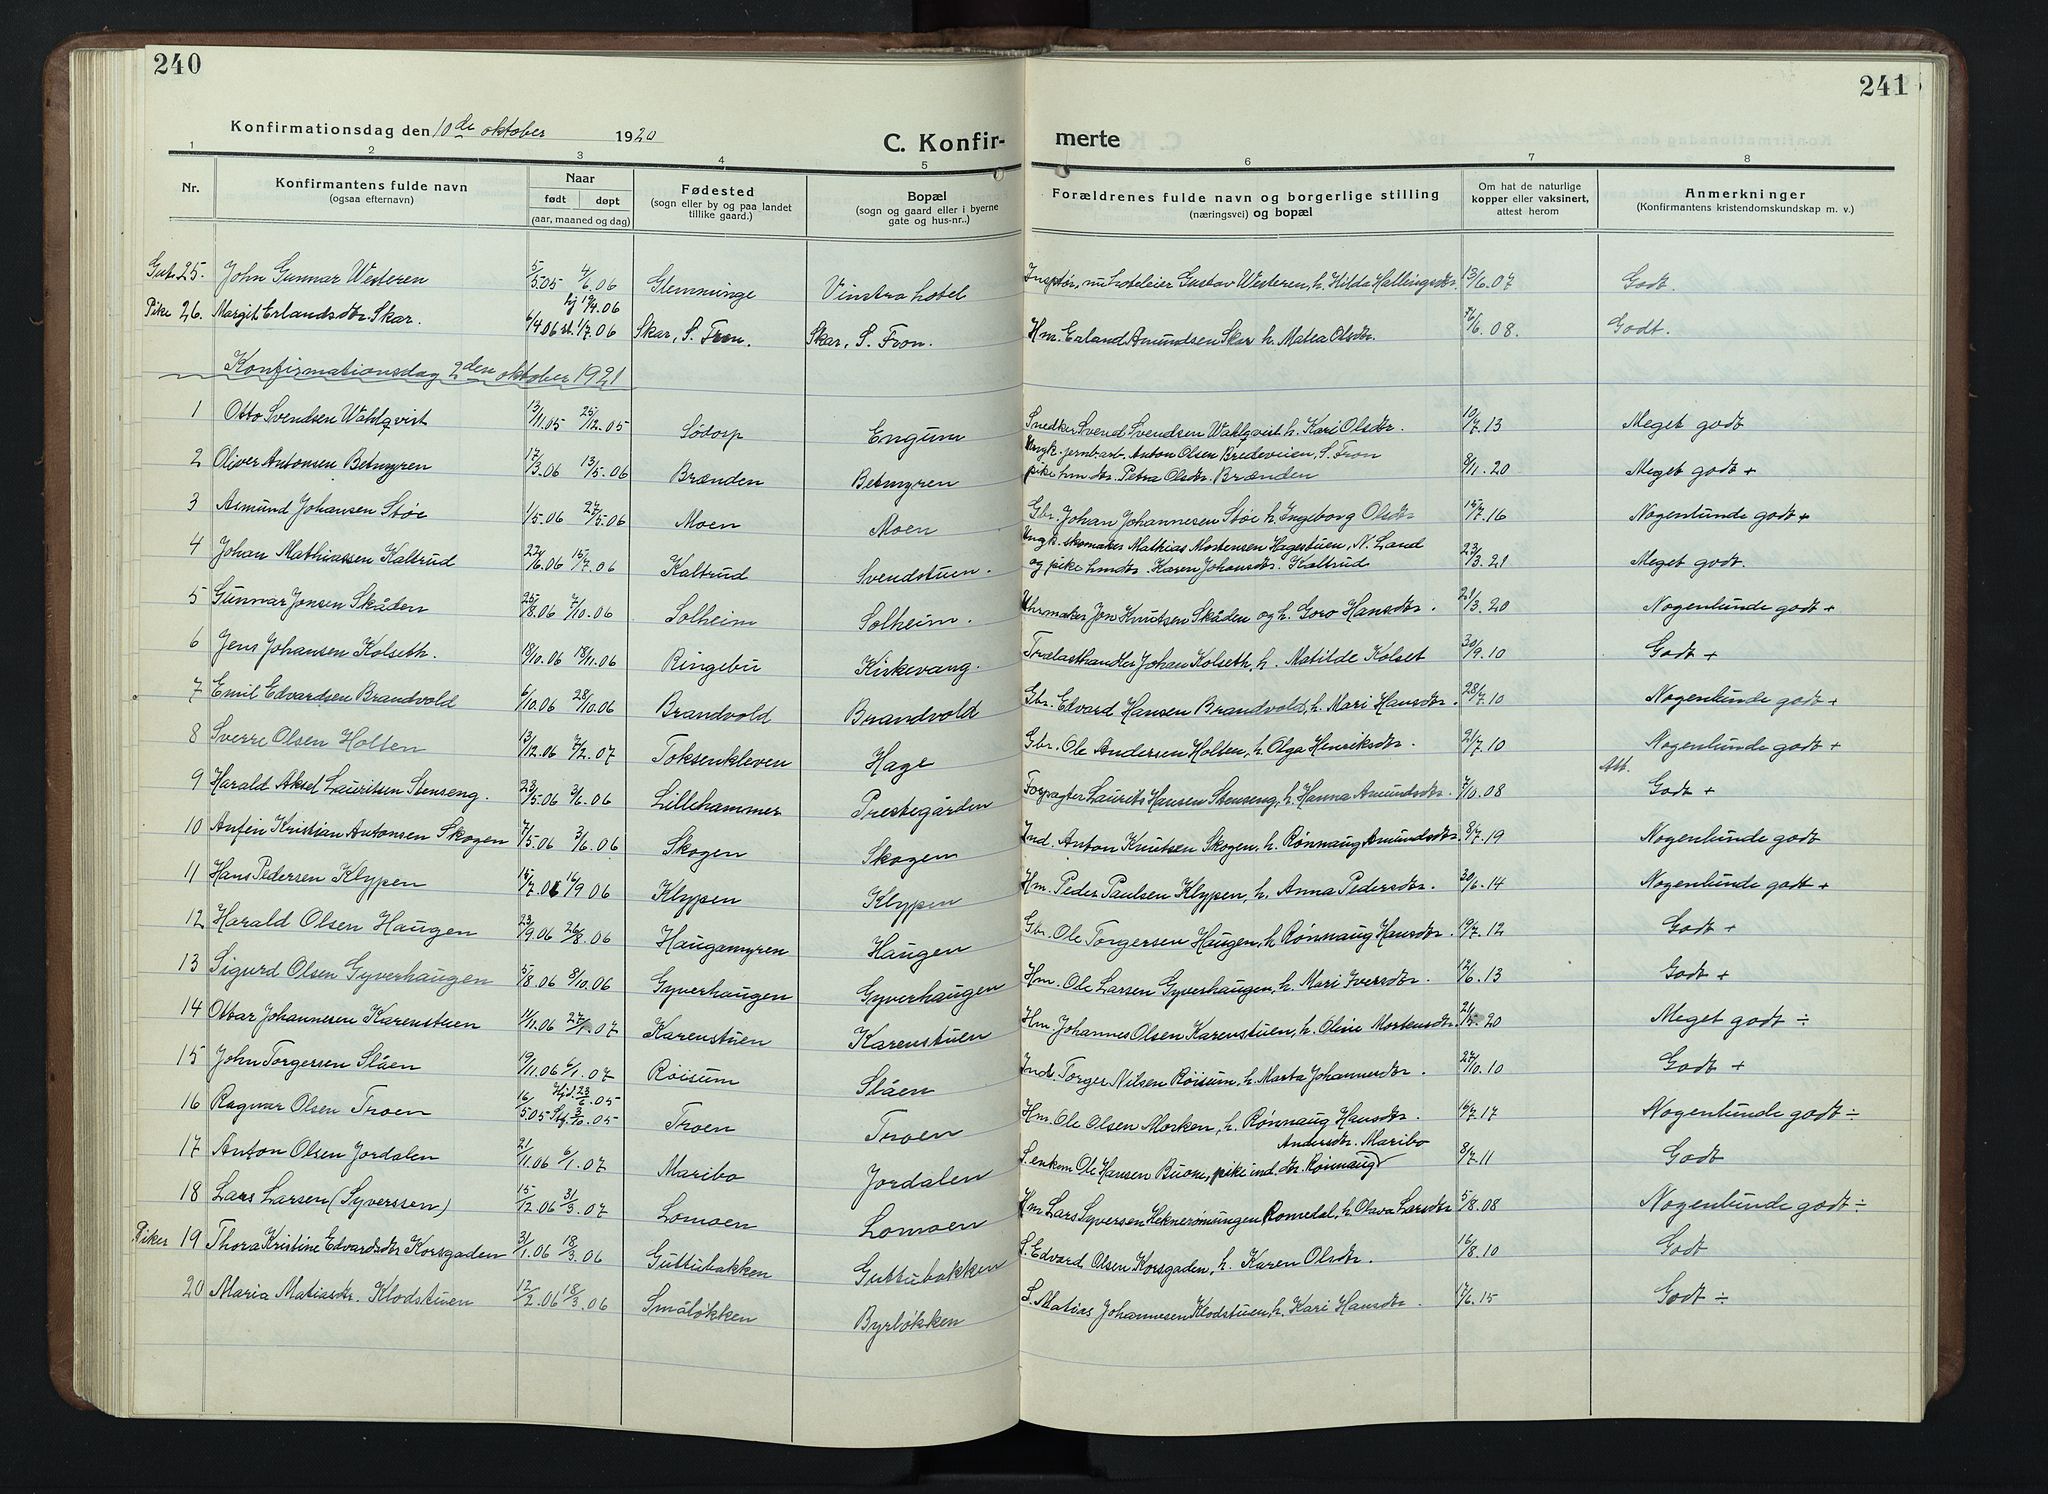 240
241
Konfirmationsdag den 10de oktober 1920
C. Konfir-
merte
1 2 3 4 5 6 7 8
Nr.
Konfirmantens fulde navn
(ogsaa efternavn)
Naar
født døpt
(aar, maaned og dag)
Fødested
(sogn eller by og paa landet
tillike gaard.)
Bopæl
(sogn og gaard eller i byerne
gate og hus-nr..)
Forældrenes fulde navn og borgerlige stilling
(næringsvei) og bopæl
Om hat de naturlige
kopper eller vaksinert,
attest herom
Anmerkninger
(Konfirmantens kristendomskundskap m. v.)
Gut 25. John Gunnar Westeren 5/5.05 4/6.06 Glemminge Vinstra hotel nu hoteleier Gustav Westeren, h. Hilda Hallingsdtr. 13/6.07 Godt.
Pike 26. Margit Erlandsdtr. Skar. 6/4.06 hj 19/4.06 st. 1/7.06 Skar, S. Fron. Skar, S. Fron. Hm. Erland Amundsen Skar h. Matea Olsdtr. 08. Godt.
Konfirmationsdag 2den oktober 1921
1 Otto Svendsen Wahlqvist 13/11.05 25/12.05 Sødorp Engum Snedker Svend Svendsen Wahlqvist h. Kari Olsdtr. 10/7.13 Meget godt
2 Oliver Antonsen Betmyren 17/3.06 13/5.06 Brænden Betmyren Ungk. jernb.arb. Anton Olsen Bredeveien, S. Fron
pike hm dtr. Petra Olsdtr. Brænden 8/11.20 Meget godt +
3 Asmund Johansen Støe 1/5.06 27/5.06 Moen Moen Gbr. Johan Johannesen Støe h. Ingeborg Olsdtr 15/7.16 Nogenlunde godt +
4 Johan Mathiassen Kaltrud 22/6.06 15/7.06 Kaltrud Svendstuen. Ungk. skomaker Mathias Mortensen Hagestuen, N. Land
og pike hmdtr. Karen Johansdtr. Kaltrud 23/3.21 Meget godt.
5 Gunnar Jonsen Skåden 25/8.06 7/10.06 Solheim Solheim. Uhrmaker Jon Knutsen Skåden og h. Goro Hansdtr. 21/3.20 Nogenlunde godt +
6 Jens Johansen Kolseth. 18/10.06 18/11.06 Ringebu Kirkevang. Trælasthandler Johan Kolseth, h. Matilde Kolset 30/9.10 Godt +
7 Emil Edvardsen Brandvold 6/10.06 28/10.06 Brandvold Brandvold Gbr. Edvard Hansen Brandvold, h. Mari Hansdtr. 28/7.10 Nogenlunde godt +
8 Sverre Olsen Holten 13/12.06 7/2.07 Toksenkleven Hage Gbr. Ole Andersen Holten, h. Olga Henriksdtr. 21/7.10 Nogenlunde godt +
9 Harald Aksel Lauritsen Stenseng. 23/5.06 3/6.06 Lillehammer Prestegården Forpagter Laurits Hansen Stenseng, h. Hanna Amundsdtr. 7/10.08 Att. Godt +
10 Anfin Kristian Antonsen Skogen 7/5.06 3/6.06 Skogen Skogen Ind. Anton Knutsen Skogen, h. Rønnaug Amundsdtr. 8/7.19 Nogenlunde godt
11 Hans Pedersen Klypen 15/7.06 16/9.06 Klypen Klypen Hm. Peder Paulsen Klypen, h. Anna Pedersdtr. 30/6.14 Nogenlunde godt +
12 Harald Olsen Haugen 23/9.06 26/8.06 Haugamyren Haugen Gbr. Ole Torgersen Haugen, h. Rønnaug Hansdtr. 19/7.12 Godt +
13 Sigurd Olsen Gyverhaugen 5/8.06 8/10.06 Gyverhaugen Gyverhaugen Hm. Ole Larsen Gyverhaugen, h. Mari Iversdtr. 12/6.13 Godt +
14 Ottar Johannesen Karenstuen 11/11.06 27/1.07 Karenstuen Karenstuen Hm Johannes Olsen Karenstuen, h. Oline Mortensdtr. 21/5.20 Meget godt ÷
15 John Torgersen Slåen 19/11.06 6/1.07 Røisum Slåen Ind. Torger Nilsen Røisum, h. Marta Johannesdtr. 27/10.10 Godt +
16 Ragnar Olsen Troen 16/5.05 Hjd. 23/6.05 St. 3/10.05 Troen Troen Hm. Ole Olsen Morken, h. Rønnaug Hansdtr. 16/7.17 Nogenlunde godt ÷
17 Anton Olsen Jordalen 21/11.06 6/1.07 Maribo Jordalen S. enkem Ole Hansen Buom, pike ind. dtr. Rønnaug Andersdtr. Maribo 8/7.11 Godt
18 Lars Larsen (Syverssen) 15/12.06 31/3.07 Lomoen Lomoen Hm Lars Syversen Heknerønningen, Romedal, h. Olava Larsdtr 5/8.08 Nogenlunde godt ÷
Piker 19 Thora Kristine Edvardsdtr Korsgaden 31/1.06 18/3.06 Guttubakken Guttubakken S. Edvard Olsen Korsgaden, h. Karen Olsdtr. 16/8.10 Godt
20 Maria Matiasdtr. Klodstuen 12/2.06 18/3.06 Småløkken Byrløkken S. Matias Johannesen Klodstuen, h. Kari Hansdtr. 17/6.15 Godt ÷